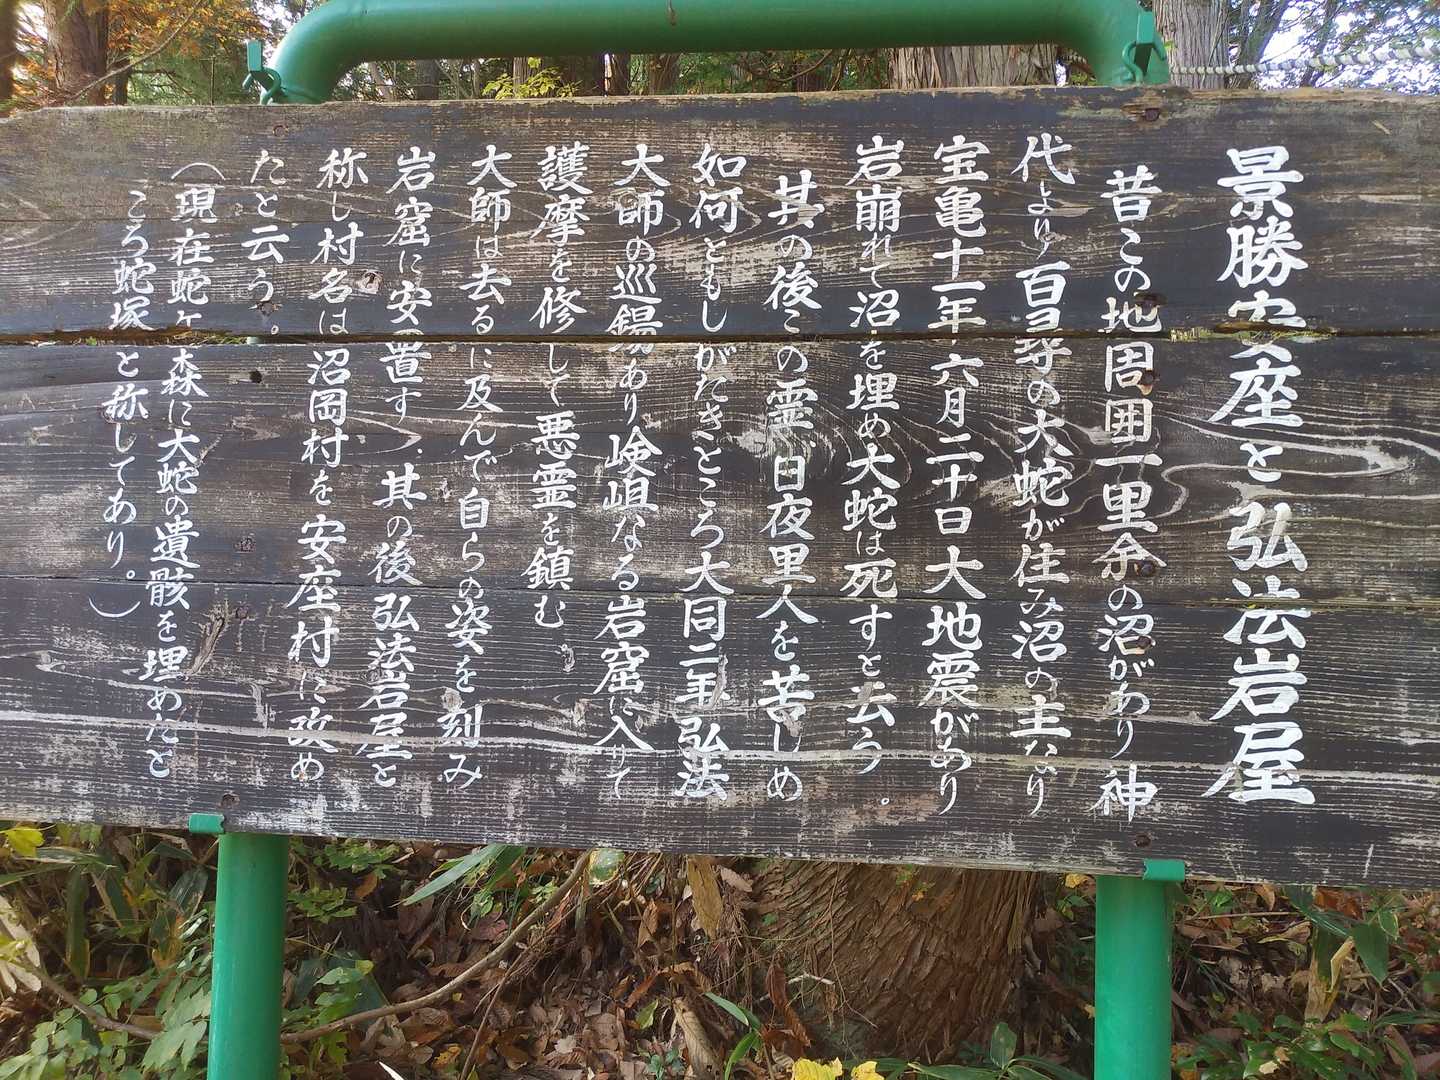 景勝安座と弘法岩屋
昔この地周囲一里余の沼があり神
代より百尋の大蛇が住み沼の主なり
宝亀十一年六月二十日大地震があり
岩崩れて沼を埋め大蛇は死すと云う。
其の後この霊日夜里人を苦しめ
如何ともしがたきところ大同二年弘法
大師の巡錫あり嶮岨なる岩窟に入りて
護摩を修して悪霊を鎮む
大師は去るに及んで自らの姿を刻み
岩窟に安置す.其の後弘法岩屋と
称し村名は沼岡村を安座村に改め
たと云う。
(現在蛇ケ森に大蛇の遺骸を埋めたと
ころ蛇塚と称してあり。)